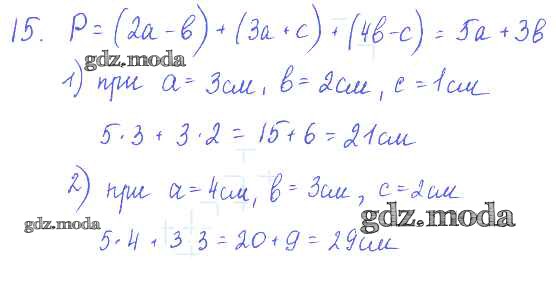 15. P = (2a - в) + (3a + c) + (4в - c) = 5a + 3в
gdz.moda
1) при a = 3см, в = 2см, c = 1см
5·3 + 3·2 = 15 + 6 = 21см
2) при a = 4см, в = 3см, c = 2см
gdz.moda
gdz.moda
5·4 + 3 3 = 20 + 9 = 29см